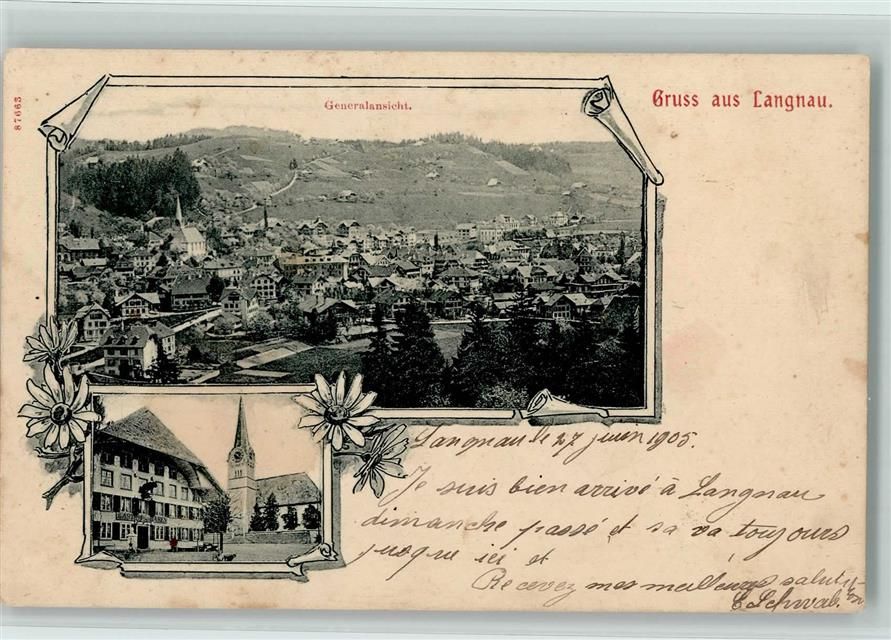 87663
Generalansicht.
Gruss aus Langnau.
Langnau le 27 juin 1905.
Je suis bien arrivé à Langnau
dimanche passé et sa va toujours
jusque ici et
Recevez mes meilleurs
E Schwab.